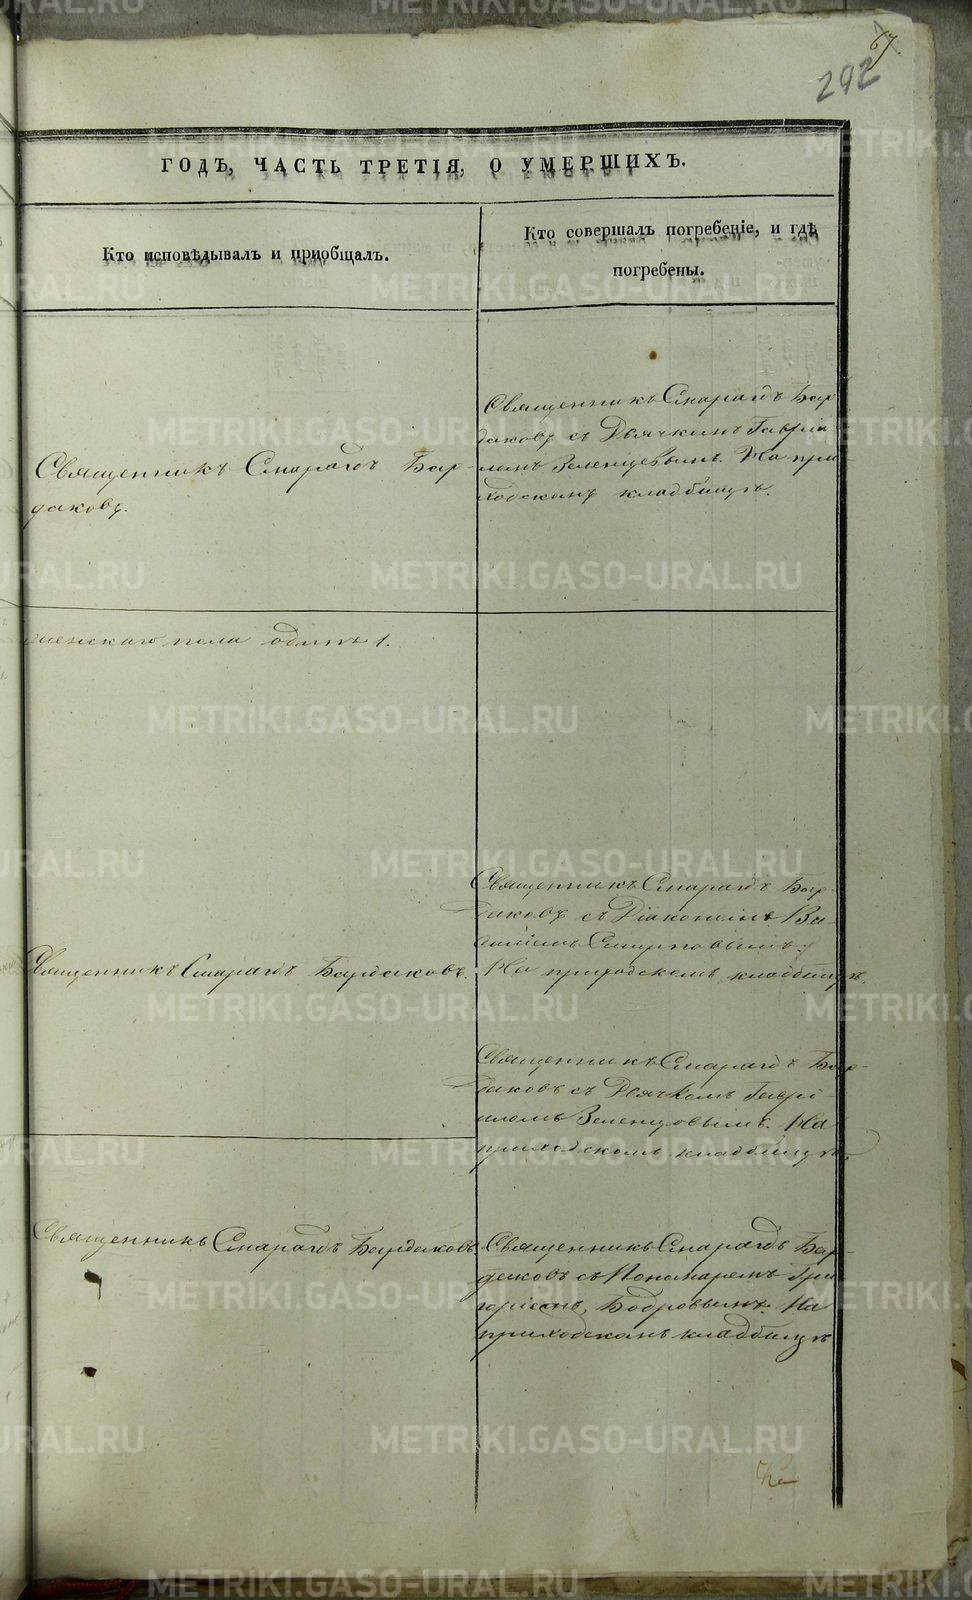 67
292
ГОДЪ, ЧАСТЬ ТРЕТІЯ, О УМЕРШИХЪ.
Кто исповѣдывалъ и пріобщалъ.
Кто совершалъ погребеніе, и гдѣ
погребены.
Священникъ Смарагдъ Бар-
даковъ.
Священникъ Смарагдъ Бар
даковъ съ Дьячкомъ Гаврiи
ломъ Зеленцовымъ. На при
ходскомъ кладбищѣ.
женскаго пола одинъ 1.
Священникъ Смарагдъ Бардаковъ.
Священникъ Смарагдъ Бар-
даковъ съ Діакономъ Ва
силіемъ Смирновымъ.
На приходскомъ кладбищѣ.
Священникъ Смарагдъ Бар-
даковъ съ Дьячкомъ Гаврi-
иломъ Зеленцовымъ. На
приходскомъ кладбищѣ.
Священникъ Смарагдъ Бардаковъ.
Священникъ Смарагдъ Бар-
даковъ съ Пономаремъ Гри
горіемъ Бобровымъ. На
приходскомъ кладбищѣ
METRIKI.GASO-URAL.RU